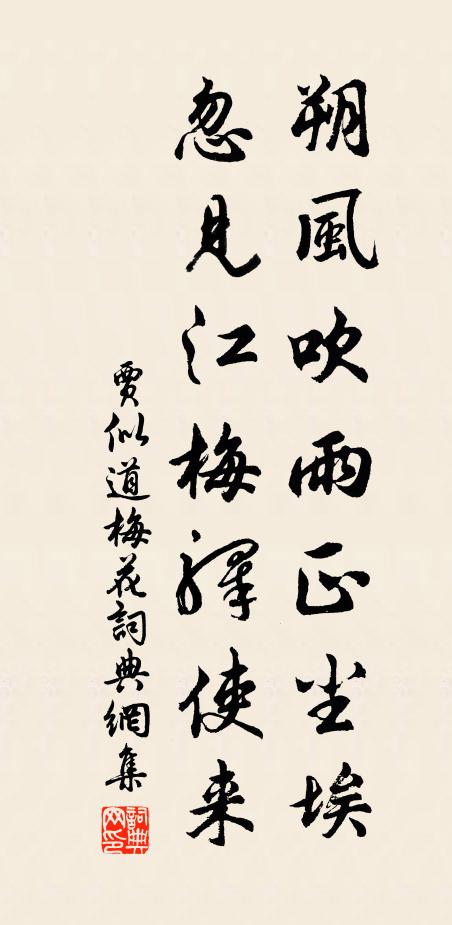 朔風吹雨正尘埃
忽見江梅驛使来
賈似道梅花詞典網集
詞典網印